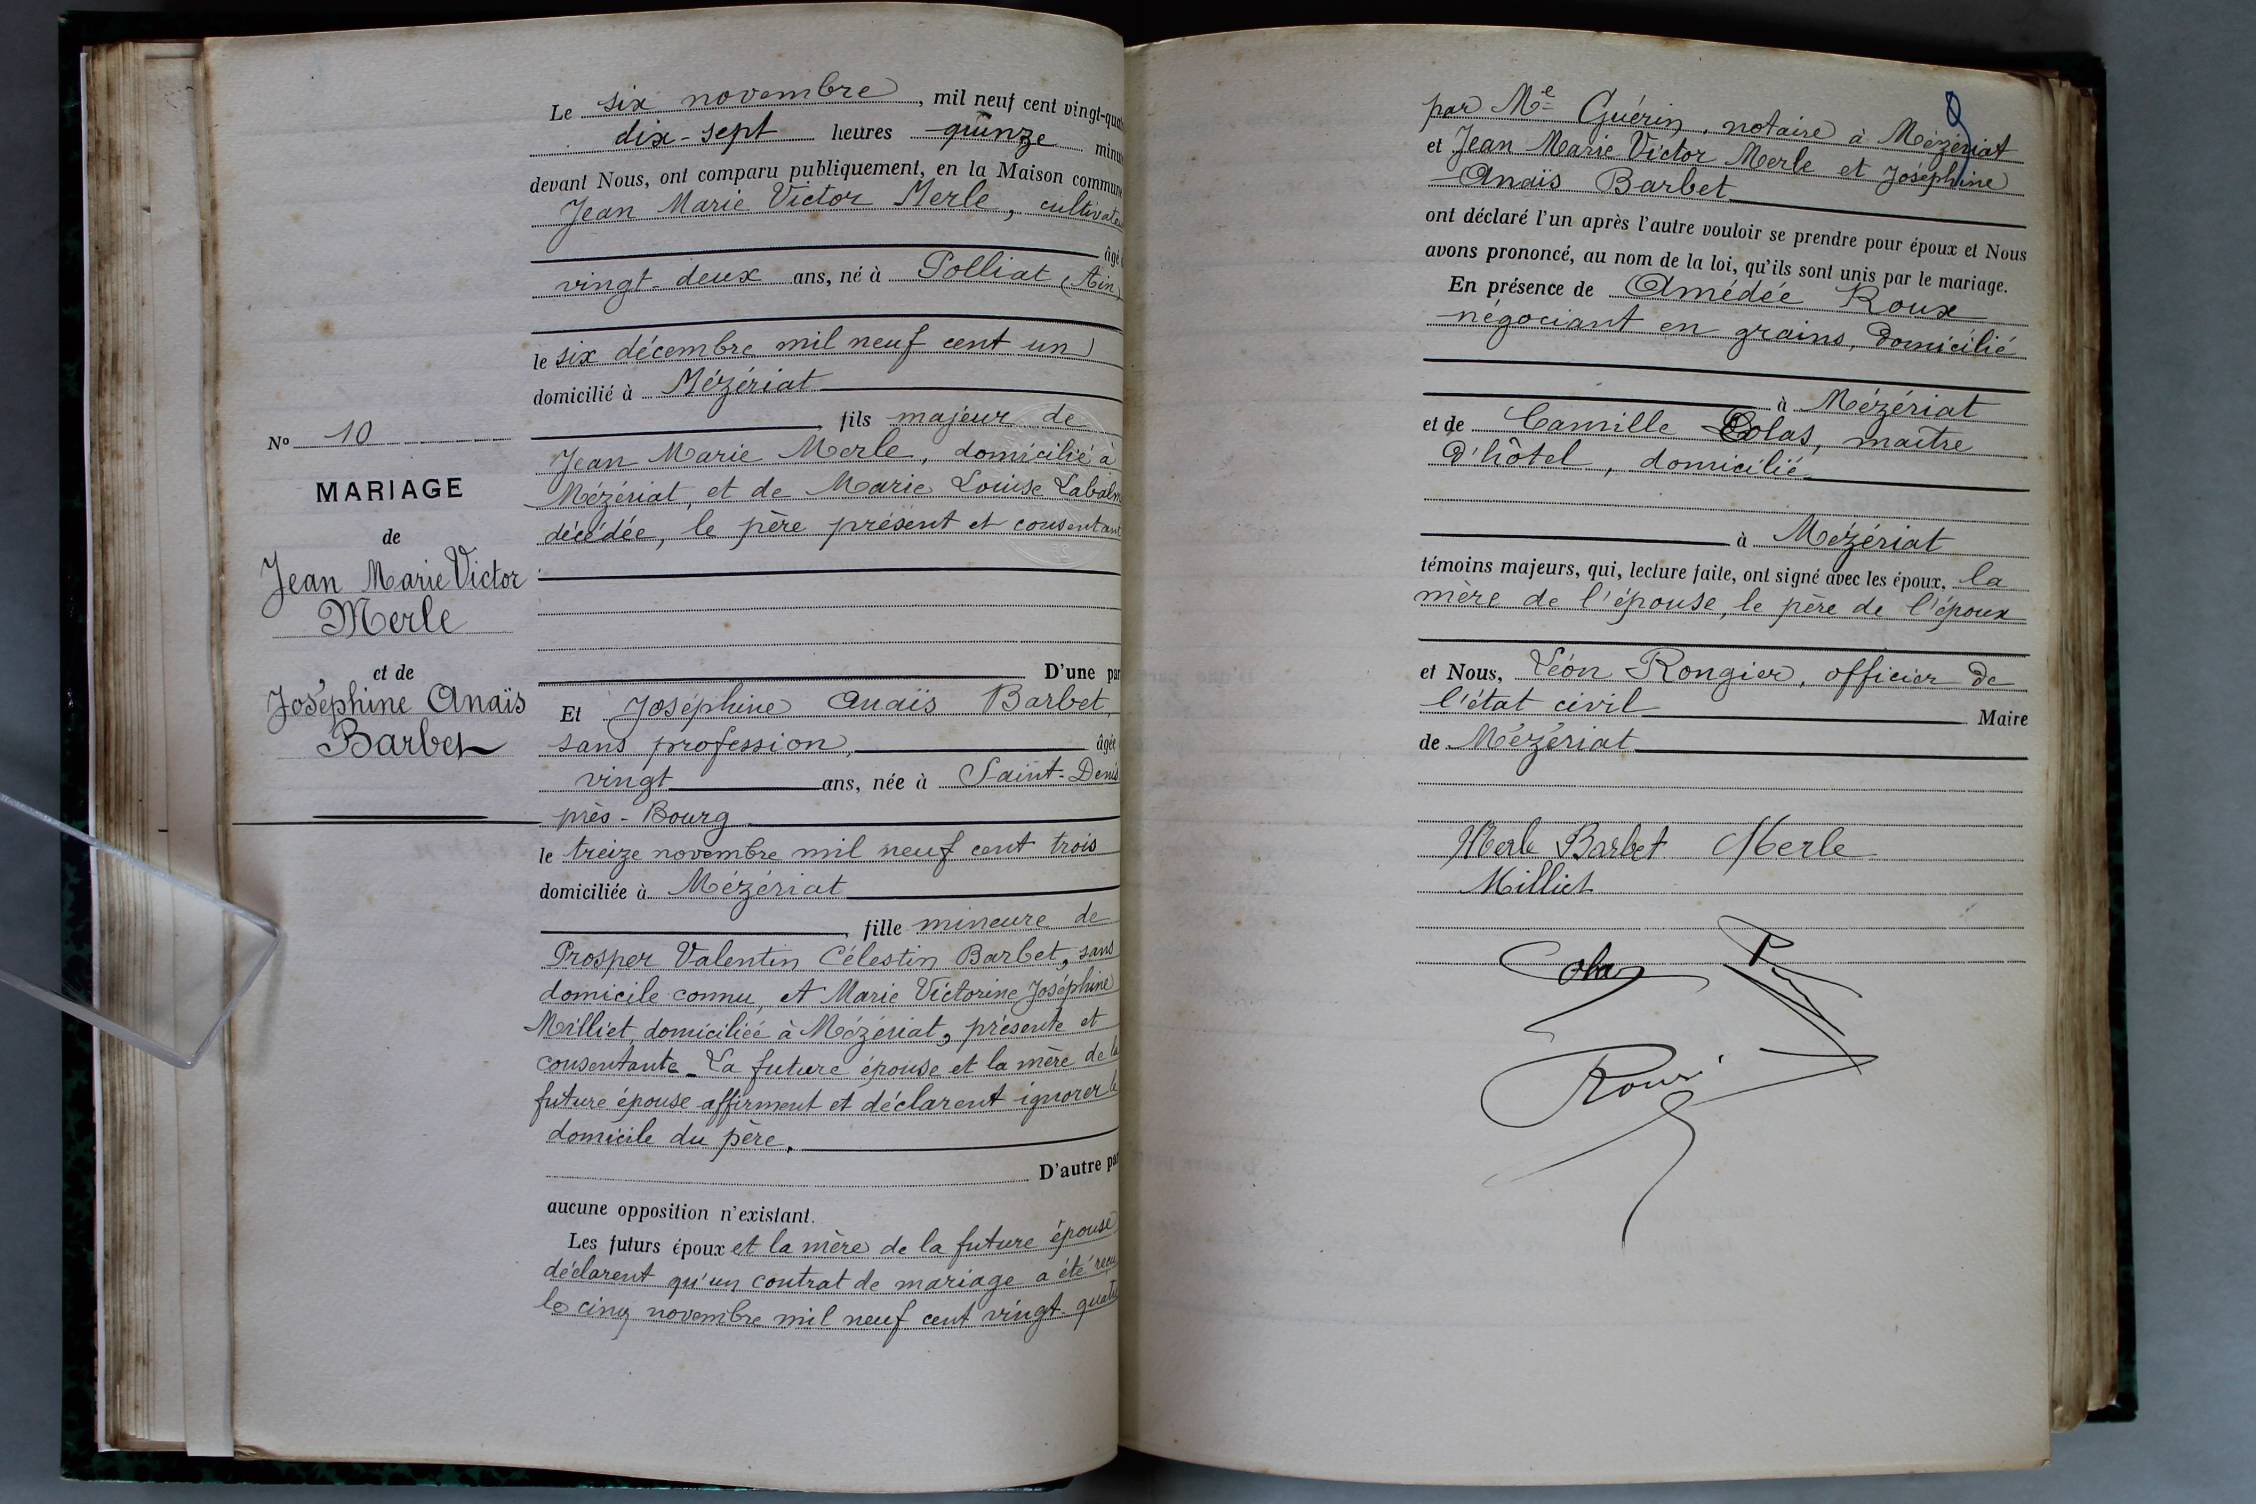 Le six novembre, mil neuf cent vingt-quat
dix-sept heures quinze minu
devant Nous, ont comparu publiquement, en la Maison commune
Jean Marie Victor Merle, cultivate
âgé
vingt-deux ans, né à Polliat (Ain)
le six décembre mil neuf cent un
domicilié à Mézériat
fils majeur de
Jean Marie Merle, domicilié à
Mézériat, et de Marie Louise Labalm
décédée, le père présent et consentant
D'une par
Nº 10
MARIAGE
de
Jean Marie Victor
Merle
et de
Joséphine Anaïs
Barbet
Et Joséphine Anaïs Barbet,
sans profession, âgée
vingt ans, née à Saint-Denis
près-Bourg
le treize novembre mil neuf cent trois
domiciliée à Mézériat
fille mineure de
Prosper Valentin Célestin Barbet, sans
domicile connu, et Marie Victorine Joséphine
Milliet, domiciliée à Mézériat, présente et
consentante_ La future épouse et la mère de la
future épouse affirment et déclarent ignorer le
domicile du père.
D'autre par
aucune opposition n'existant.
Les futurs époux et la mère de la future épouse
déclarent qu'un contrat de mariage a été reçu
le cinq novembre mil neuf cent vingt-quatre
par Me Guérin, notaire à Mézériat
et Jean Marie Victor Merle et Joséphine
Anaïs Barbet
ont déclaré l'un après l'autre vouloir se prendre pour époux et Nous
avons prononcé, au nom de la loi, qu'ils sont unis par le mariage.
En présence de Amédée Roux
négociant en grains, domicilié
à Mézériat
et de Camille Colas, maître
d'hôtel, domicilié
à Mézériat
témoins majeurs, qui, lecture faite, ont signé avec les époux, la
mère de l'épouse, le père de l'époux
et Nous, Léon Rongier, officier de
l'état civil Maire
de Mézériat
Merle Barbet Merle
Milliet
Colas
Roux